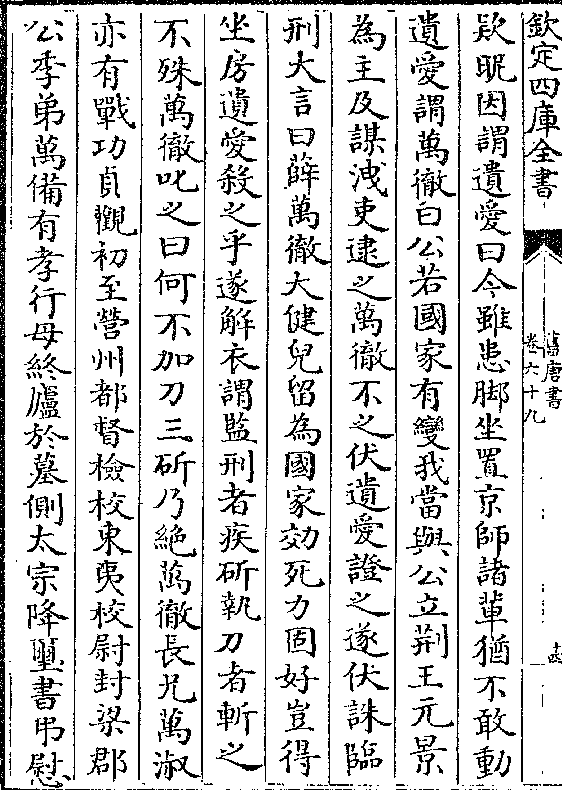 欽定四庫全書
舊唐書
卷六十九
款昵因謂遺愛曰今雖患脚坐置京師諸軰猶不敢動
遺愛謂萬徹曰公若國家有變我當與公立荆王元景
為主及謀洩吏逮之萬徹不之伏遺愛證之遂伏誅臨
刑大言曰薛萬徹大健兒留為國家効死力固好豈得
坐房遺愛殺之乎遂解衣謂監刑者疾斫執刀者斬之
不殊萬徹叱之曰何不加力三斫乃絶萬徹長兄萬淑
亦有戰功貞觀初至營州都督檢校東夷校尉封梁郡
公季弟萬備有孝行母終廬於墓側太宗降璽書弔慰